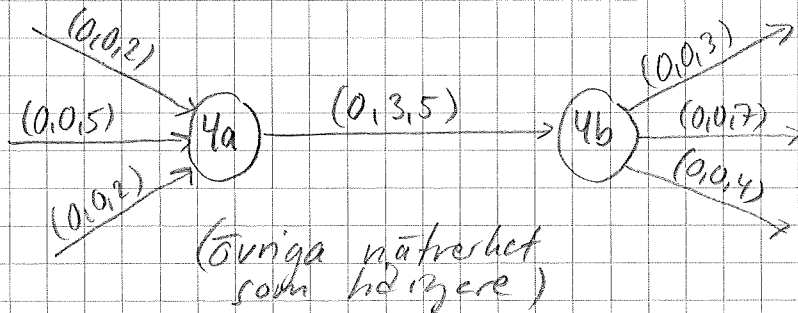 (0,0,2)
(0,0,5) 4a (0,3,5) 4b (0,0,3)
(0,0,7)
(0,0,2) (0,0,4)
(övriga nätverket
som tidigare)